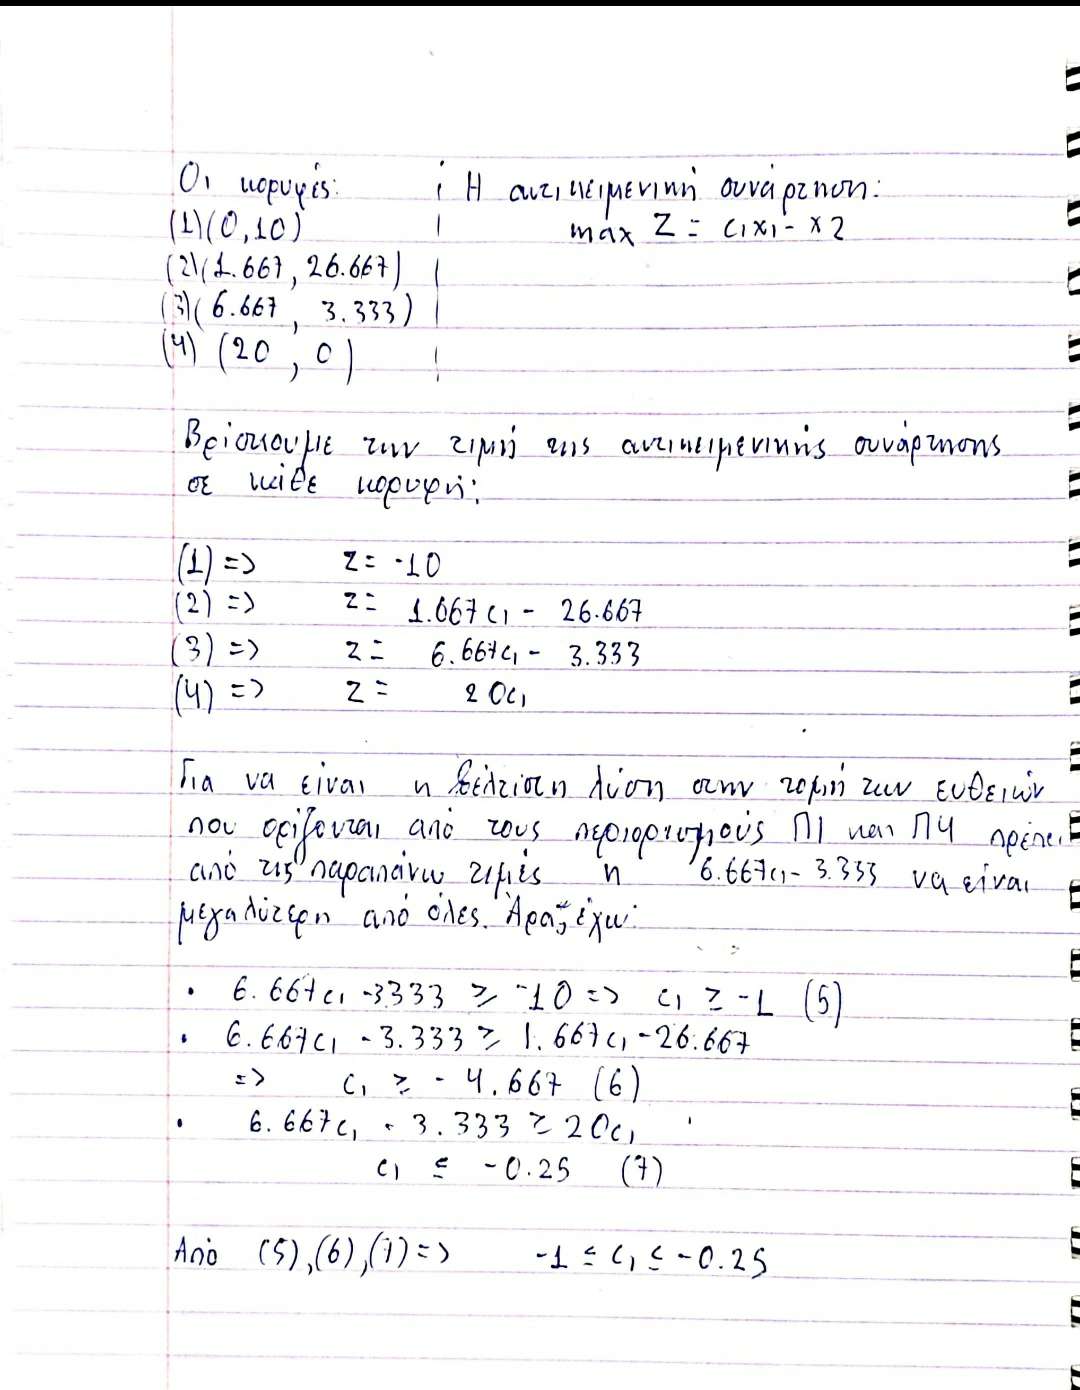 Οι κορυφές:
(1)(0,10)
(2)(1.667, 26.667)
(3)(6.667, 3.333)
(4) (20, 0)
Η αντικειμενική συνάρτηση:
max z = c₁x₁ - x2
Βρίσκουμε την τιμή της αντικειμενικής συνάρτησης
σε κάθε κορυφή:
(1) => z = -10
(2) => z = 1.667c₁ - 26.667
(3) => z = 6.667c₁ - 3.333
(4) => z = 20c₁
Για να είναι η βέλτιστη λύση στην τομή των ευθειών
που ορίζονται από τους περιορισμούς Π1 και Π4 πρέπει
από τις παραπάνω τιμές η 6.667c₁ - 3.333 να είναι
μεγαλύτερη από όλες. Άρα, έχω:
• 6.667c₁ - 3.333 ≥ -10 => c₁ ≥ -1 (5)
• 6.667c₁ - 3.333 ≥ 1.667c₁ - 26.667
=> c₁ ≥ -4.667 (6)
• 6.667c₁ - 3.333 ≥ 20c₁
c₁ ≤ -0.25 (7)
Από (5),(6),(7) => -1 ≤ c₁ ≤ -0.25